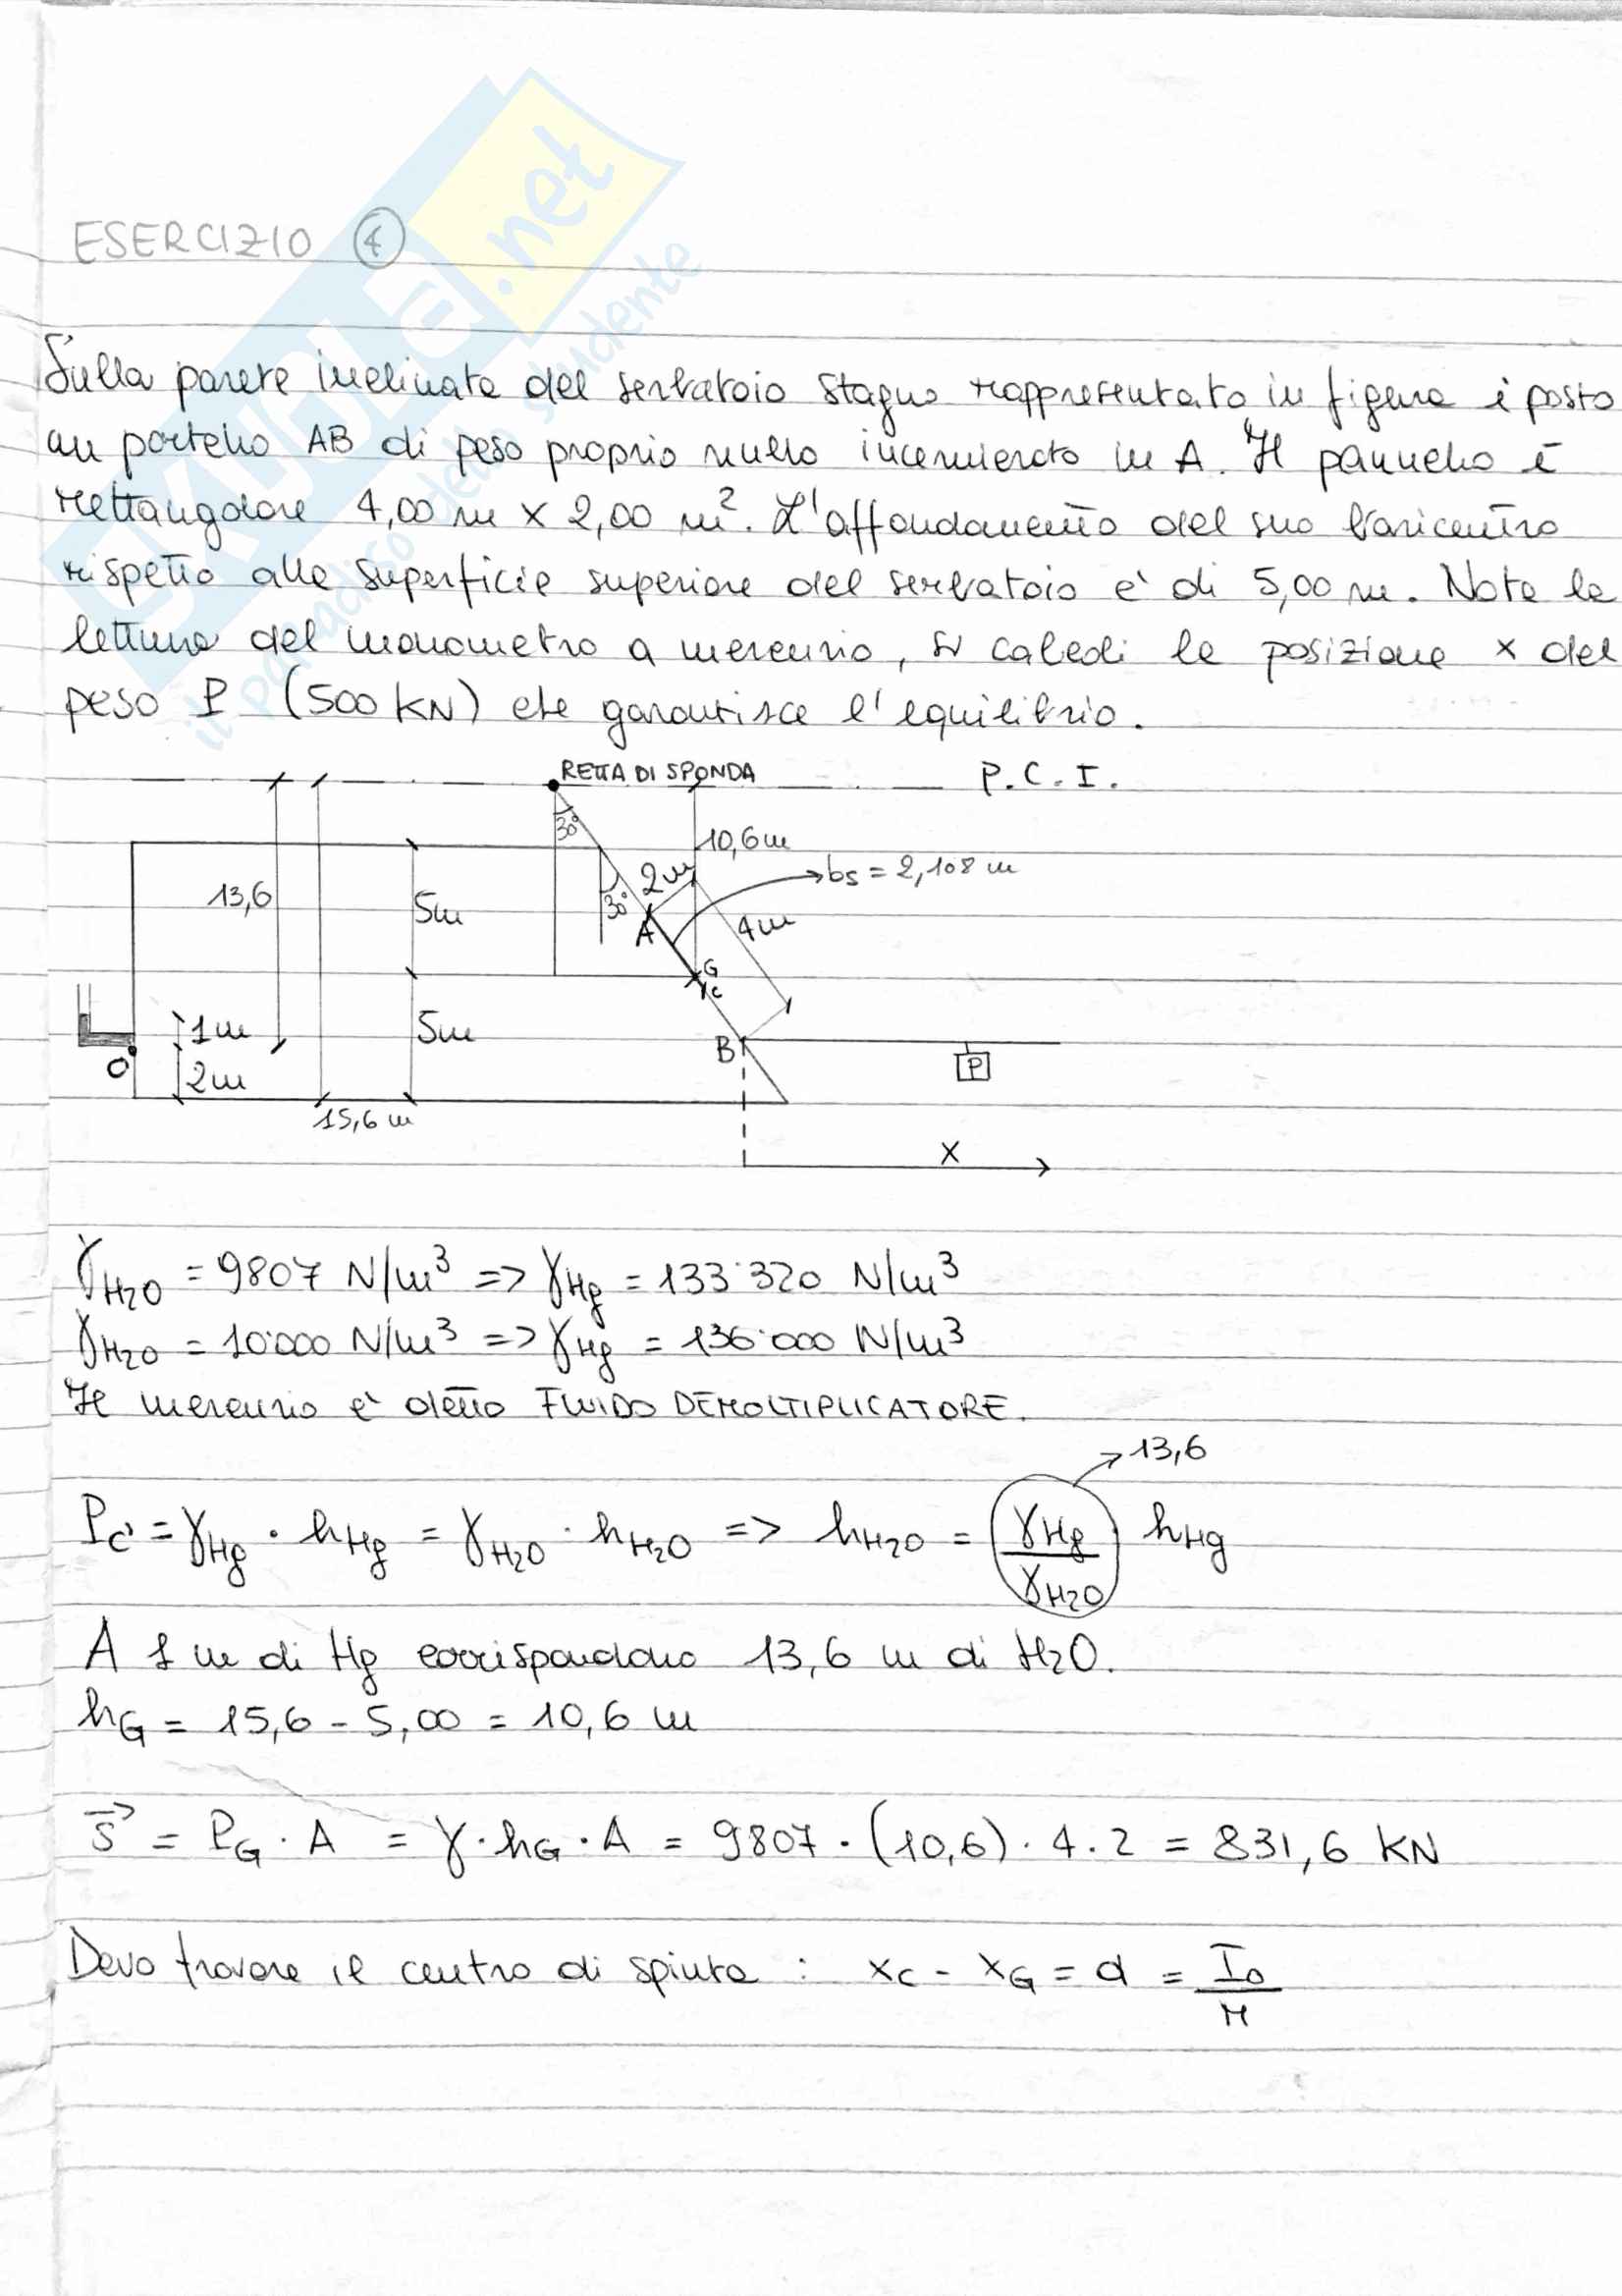 ESERCIZIO 4
Sulla parete inclinata del serbatoio stagno rappresentato in figura è posto
un portello AB di peso proprio nullo incernierato in A. Il pannello è
rettangolare 4,00 m x 2,00 m². L'affondamento del suo baricentro
rispetto alla superficie superiore del serbatoio è di 5,00 m. Nota la
lettura del manometro a mercurio, si calcoli la posizione x del
peso P (500 KN) che garantisce l'equilibrio.
RETTA DI SPONDA
P.C.I.
30°
10,6 m
2m
bs = 2,108 m
13,6
5m
30°
A
4m
G
C
1m
5m
B
P
O
2m
15,6 m
X
γH2O = 9807 N/m³ => γHg = 133'320 N/m³
γH2O = 10'000 N/m³ => γHg = 136'000 N/m³
Il mercurio è detto FLUIDO DEMOLTIPLICATORE.
13,6
Pc' = γHg · hHg = γH2O · hH2O => hH2O = γHg/γH2O · hHg
A 1 m di Hg corrispondono 13,6 m di H2O.
hG = 15,6 - 5,00 = 10,6 m
S = PG · A = γ · hG · A = 9807 · (10,6) · 4 · 2 = 831,6 KN
Devo trovare il centro di spinta : xc - xG = d = Io/M
skuola.net
il paradiso dello studente